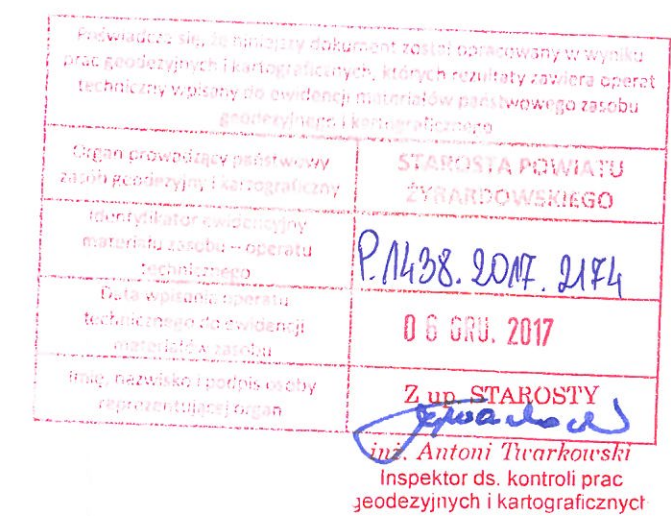 Poświadcza się, że niniejszy dokument został opracowany w wyniku
prac geodezyjnych i kartograficznych, których rezultaty zawiera operat
techniczny wpisany do ewidencji materiałów państwowego zasobu
geodezyjnego i kartograficznego
Organ prowadzący państwowy
zasób geodezyjny i kartograficzny
STAROSTA POWIATU
ŻYRARDOWSKIEGO
Identyfikator ewidencyjny
materiału zasobu – operatu
technicznego
P.1438.2017.2174
Data wpisania operatu
technicznego do ewidencji
materiałów zasobu
06 GRU. 2017
Imię, nazwisko i podpis osoby
reprezentującej organ
Z up. STAROSTY
inż. Antoni Twarkowski
Inspektor ds. kontroli prac
geodezyjnych i kartograficznych